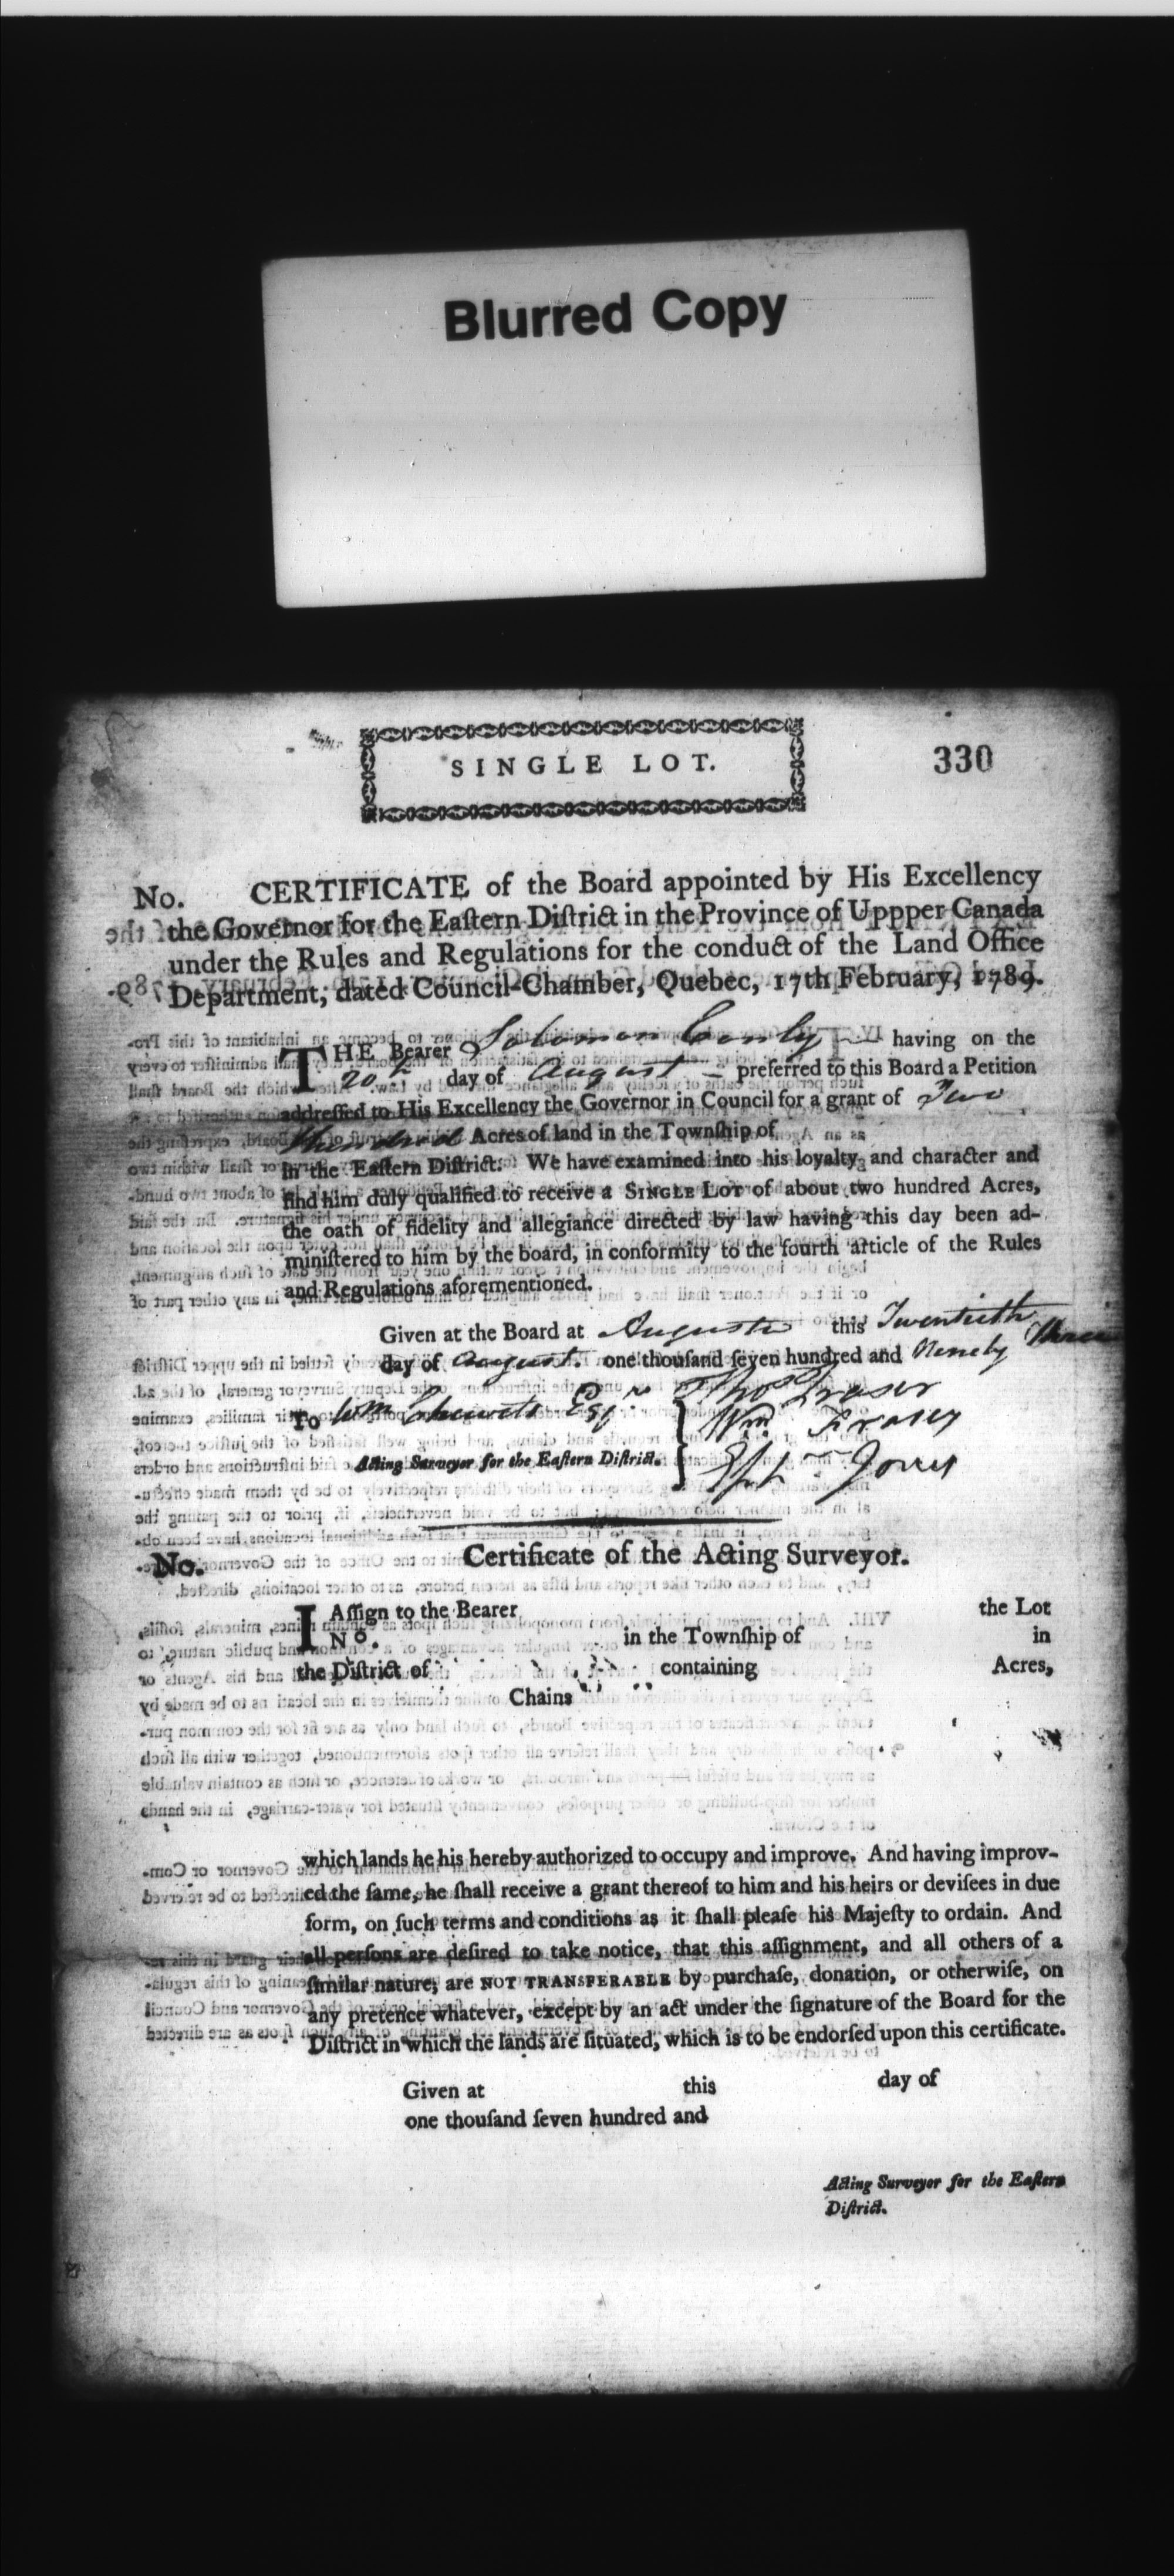 Blurred Copy
SINGLE LOT.
330
No. CERTIFICATE of the Board appointed by His Excellency
the Governor for the Eaſtern Diſtrict in the Province of Uppper Canada
under the Rules and Regulations for the conduct of the Land Office
Department, dated Council-Chamber, Quebec, 17th February, 1789.
THE Bearer Solomon having on the
20th day of August preferred to this Board a Petition
addreſſed to His Excellency the Governor in Council for a grant of Two
Hundred Acres of land in the Townſhip of
in the Eaſtern Diſtrict. We have examined into his loyalty and character and
find him duly qualified to receive a SINGLE LOT of about two hundred Acres,
the oath of fidelity and allegiance directed by law having this day been ad-
miniſtered to him by the board, in conformity to the fourth article of the Rules
and Regulations aforementioned.
Given at the Board at Augusta this Twentieth
day of August. one thouſand ſeven hundred and Ninety Three
To Wm Esqr. Thos Fraser
Wm Fraser
Acting Surveyor for the Eaſtern Diſtrict. Jones
No. Certificate of the Acting Surveyor.
I Aſſign to the Bearer the Lot
No. in the Townſhip of in
the Diſtrict of containing Acres,
Chains
which lands he his hereby authorized to occupy and improve. And having improv-
ed the ſame, he ſhall receive a grant thereof to him and his heirs or deviſees in due
form, on ſuch terms and conditions as it ſhall pleaſe his Majeſty to ordain. And
all perſons are deſired to take notice, that this aſſignment, and all others of a
ſimilar nature, are NOT TRANSFERABLE by purchaſe, donation, or otherwiſe, on
any pretence whatever, except by an act under the ſignature of the Board for the
Diſtrict in which the lands are ſituated, which is to be endorſed upon this certificate.
Given at this day of
one thouſand ſeven hundred and
Acting Surveyor for the Eaſtern
Diſtrict.